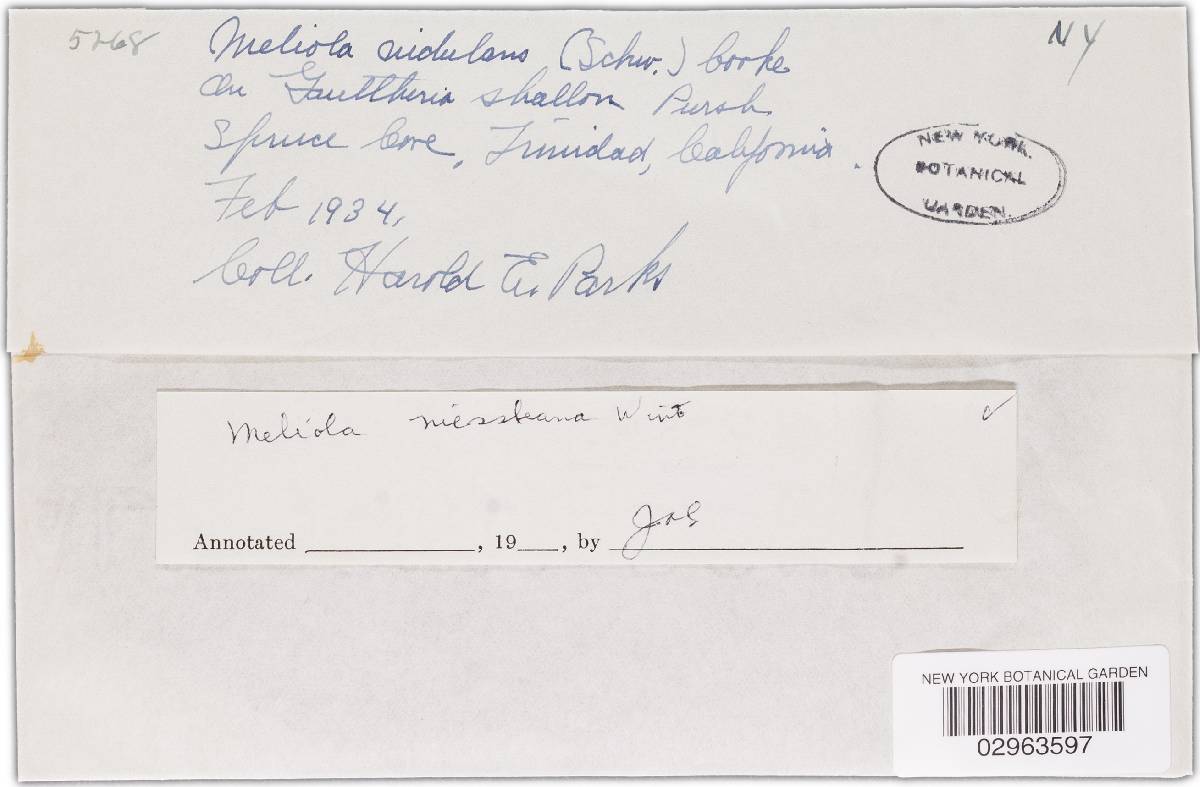 5268
NY
Meliola nidulans (Schw.) Cooke
On Gaultheria shallon Pursh
Spruce Cove, Trinidad, California.
Feb 1934,
Coll. Harold E. Parks
NEW YORK
BOTANICAL
GARDEN.
Meliola niessleana Wint
Annotated ____________, 19___, by
NEW YORK BOTANICAL GARDEN
02963597